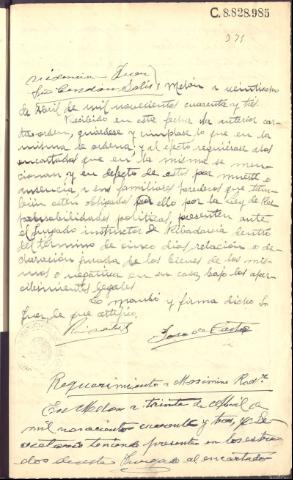 C.8.828.985
Providencia Juez
Sr. Cendón Solís Melón a veinticinco
de Abril de mil novecientos cuarenta y tres.
Recibido en esta fecha la anterior car-
ta orden, guárdese y cúmplase lo que en la
misma se ordena; y al efecto requiérase a los
encartados que en la misma se men-
cionan y en defecto de estos por muerte o
ausencia, a sus familiares para los que tam-
bién esten obligados por ello por la Ley de Res-
ponsabilidades politicas, presenten ante
el Juzgado instructor de Ribadavia dentro
del término de cinco dias relación o de-
claración jurada de los bienes de los mis-
mos o negativa en su caso, bajo los aper-
cibimientos legales.
Lo mandó y firma dicho Sr
Juez de que certifico.
Requerimiento a Maximino Rodz.
En Melon a treinta de Abril de
mil novecientos cuarenta y tres, yo Se-
cretario teniendo presente en los estra-
dos de este Juzgado al encartado